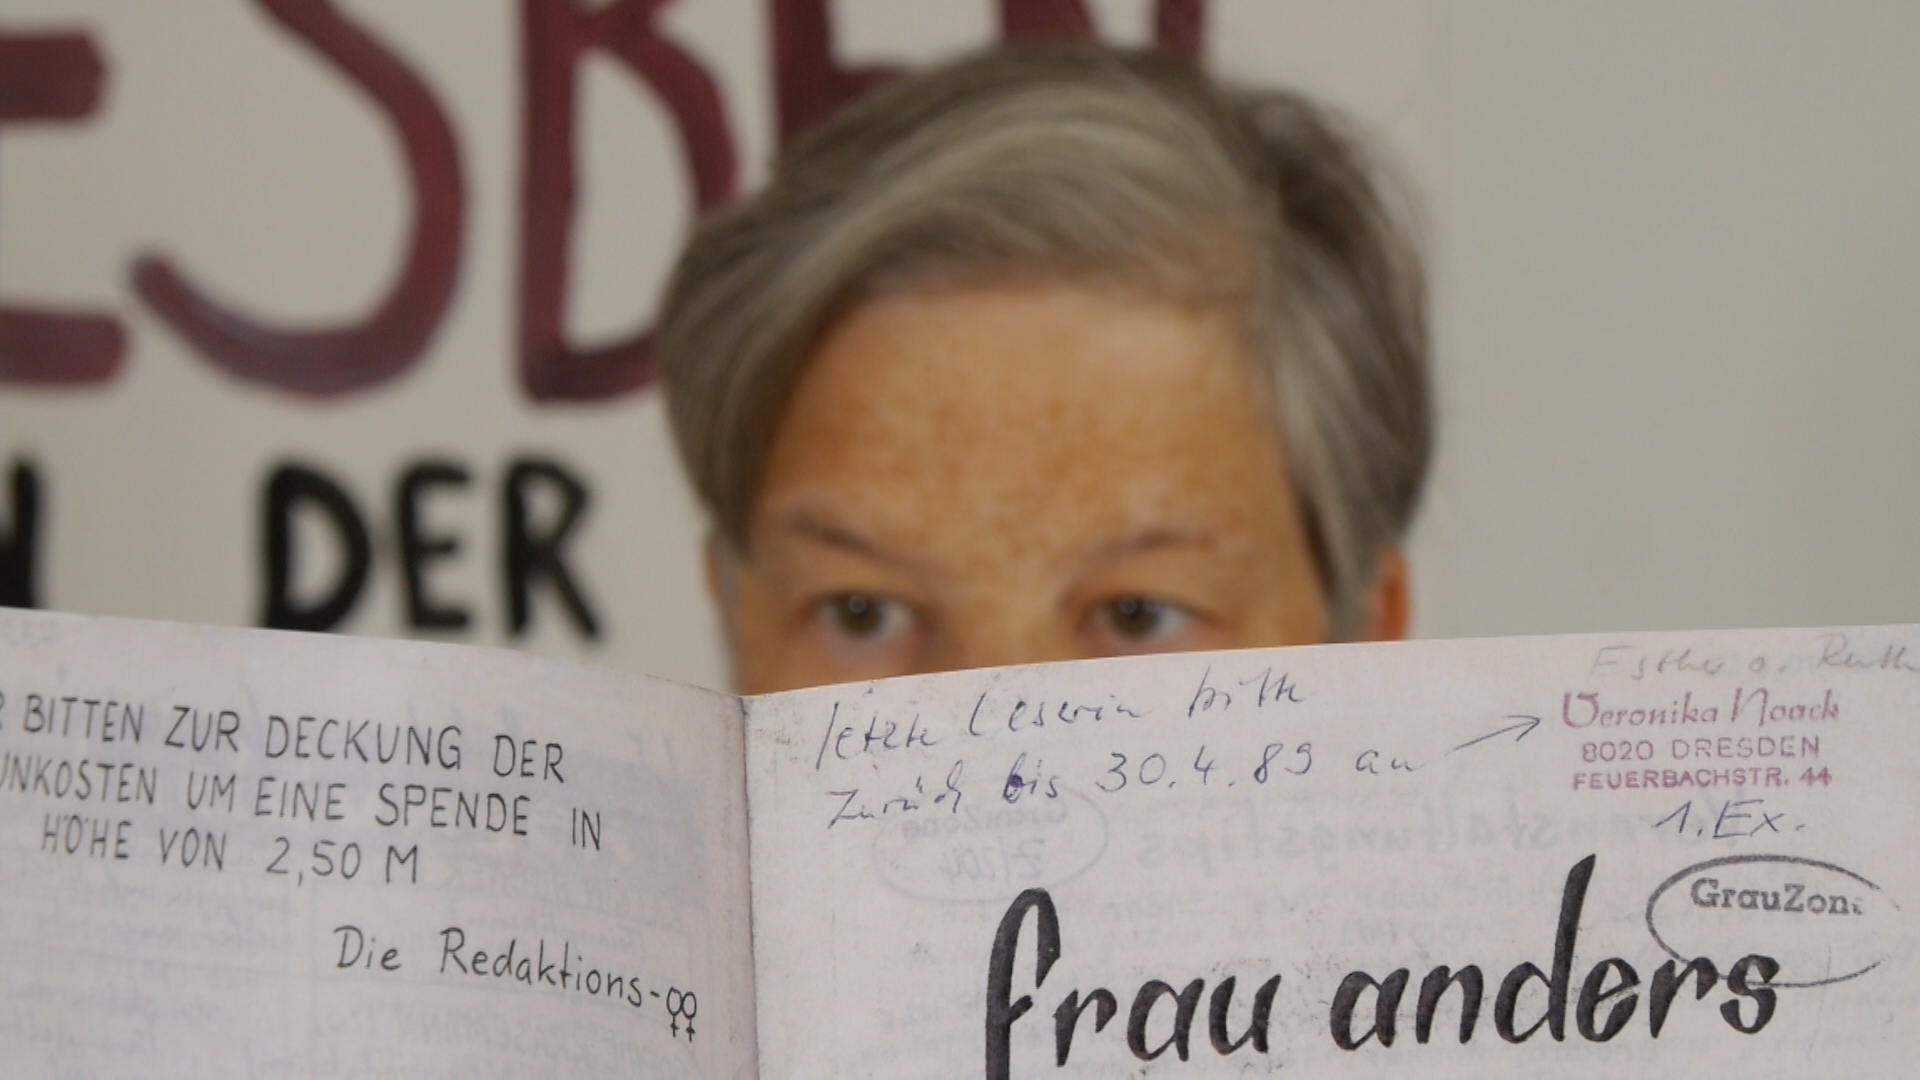 ESBEN
N DER
R BITTEN ZUR DECKUNG DER
UNKOSTEN UM EINE SPENDE IN
HÖHE VON 2,50 M
Die Redaktions-♀♀
letzte Leserin bitte
zurück bis 30.4.89 an →
Esther o. Ruth
Veronika Noack
8020 DRESDEN
FEUERBACHSTR. 44
1. Ex.
GrauZone
frau anders